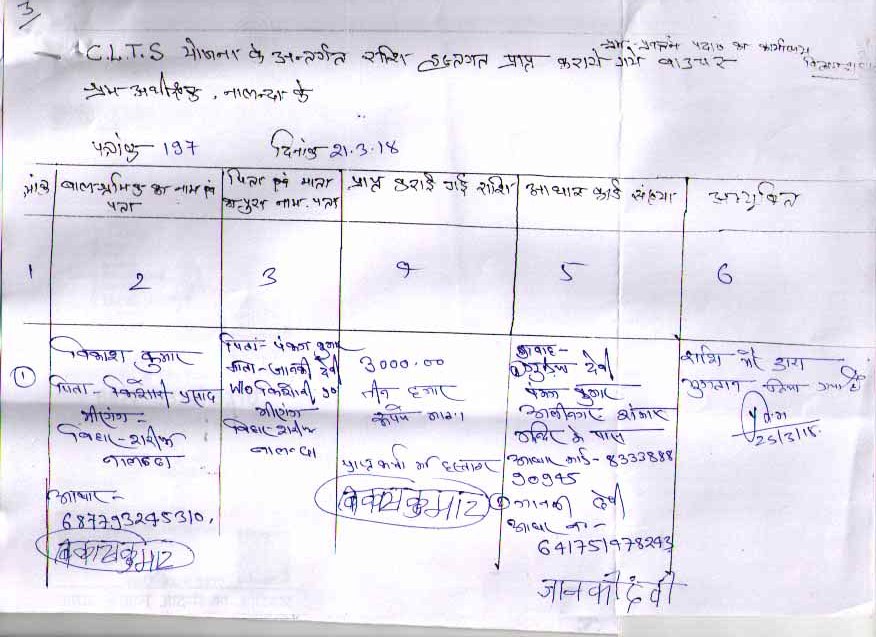 3
C.L.T.S योजना के अन्तर्गत राशि हस्तगत प्राप्त कराये गये वाउचर
श्रम अधीक्षक, नालन्दा के
पत्रांक 197 दिनांक 21.3.18
बाल श्रमिक का नाम एवं पता
पिता एवं माता नाम, पता
प्राप्त कराई गई राशि
आधार कार्ड संख्या
अभ्युक्ति
1 2 3 4 5 6
1
विकाश कुमार
पिता - किशोरी प्रसाद
बिहार शरीफ
नालन्दा
आधार -
687793245310,
विकाश कुमार
पिता - पंकज कुमार
माता - जानकी देवी
W/O किशोरी प्र०
बिहार शरीफ
नालन्दा
3000.00
तीन हजार
रूपये मात्र।
प्राप्त कर्ता का हस्ताक्षर
विकाश कुमार
गवाह -
देवी
पंकज कुमार
मन्दिर के पास
आधार कार्ड - 8333888
90945
जानकी देवी
आधार नं० -
641751978243
जानकी देवी
राशि मेरे द्वारा
भुगतान किया गया है
25/3/18